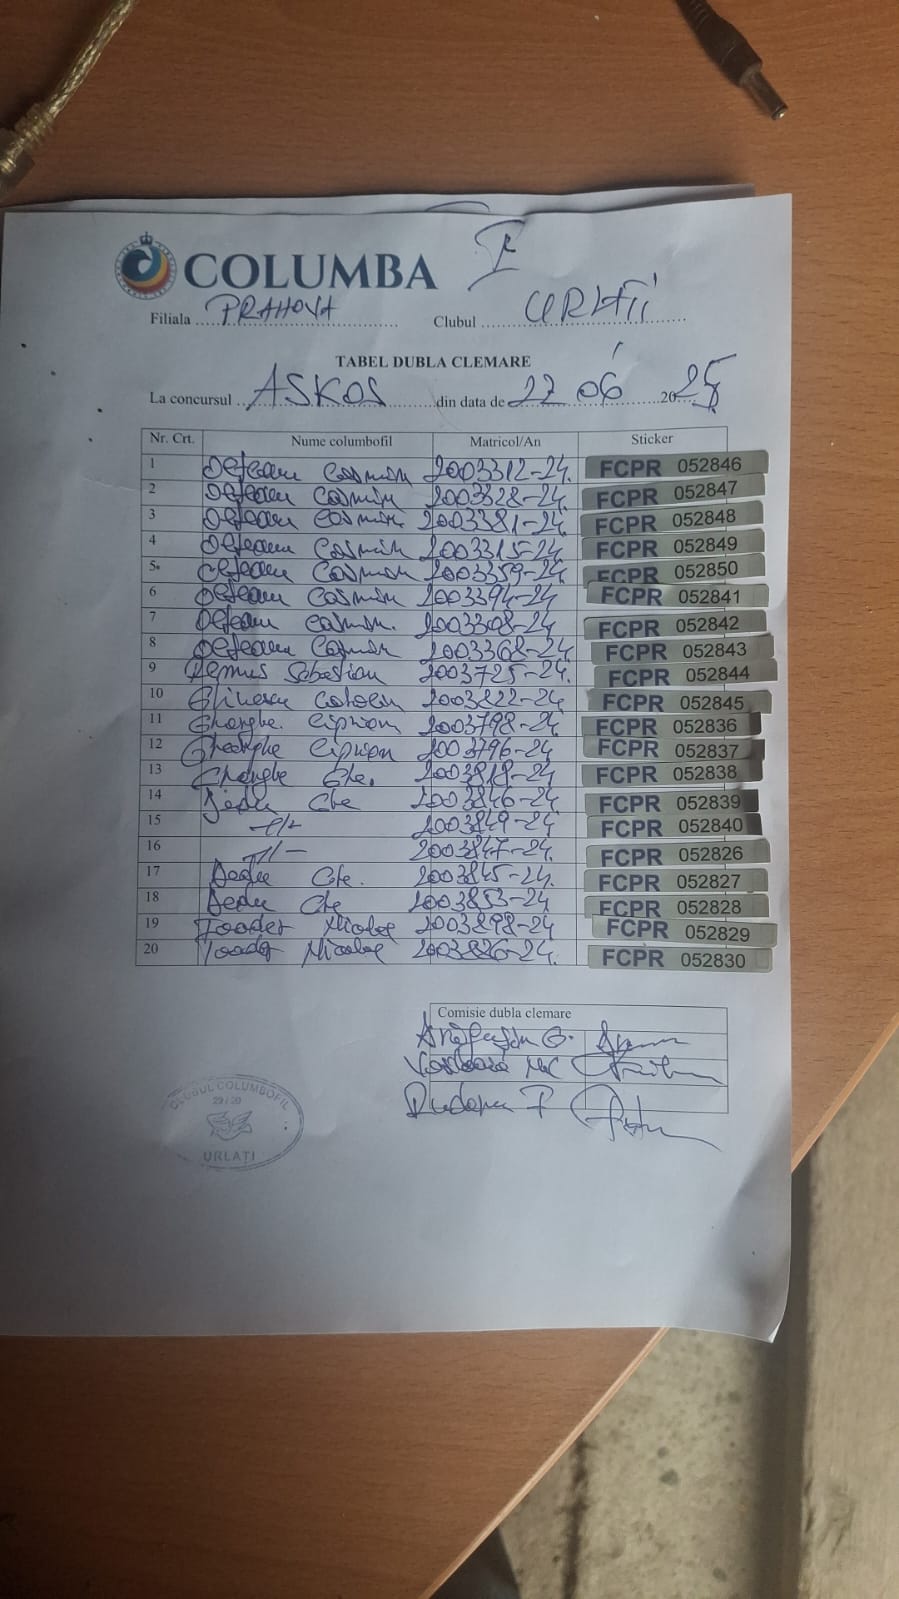 I
COLUMBA
Filiala PRAHOVA Clubul URLAȚI
TABEL DUBLA CLEMARE
La concursul ASKOS din data de 22 06 2025
Nr. Crt. Nume columbofil Matricol/An Sticker
1 Cosmin 2003312-24. FCPR 052846
2 Cosmin 2003328-24. FCPR 052847
3 Cosmin. 2003381-24 FCPR 052848
4 Cosmin 2003315-24 FCPR 052849
5. Cosmin 2003359-24. FCPR 052850
6 Cosmin 2003394-24 FCPR 052841
7 Cosmin. 2003308-24 FCPR 052842
8 Cosmin 2003368-24 FCPR 052843
9 Remus Sebastian 2003725-24. FCPR 052844
10 2003822-24 FCPR 052845
11 Gheorghe. Ciprian 2003798-24 FCPR 052836
12 Gheorghe Ciprian 2003796-24 FCPR 052837
13 Gheorghe Gh. 2003818-24 FCPR 052838
14 2003846-24 FCPR 052839
15 -//- 2003849-24 FCPR 052840
16 -//- 2003847-24. FCPR 052826
17 2003845-24. FCPR 052827
18 2003853-24 FCPR 052828
19 Toader Nicolae 2003898-24 FCPR 052829
20 Toader Nicolae 2003886-24. FCPR 052830
Comisie dubla clemare
G.
CLUBUL COLUMBOFIL
URLAȚI